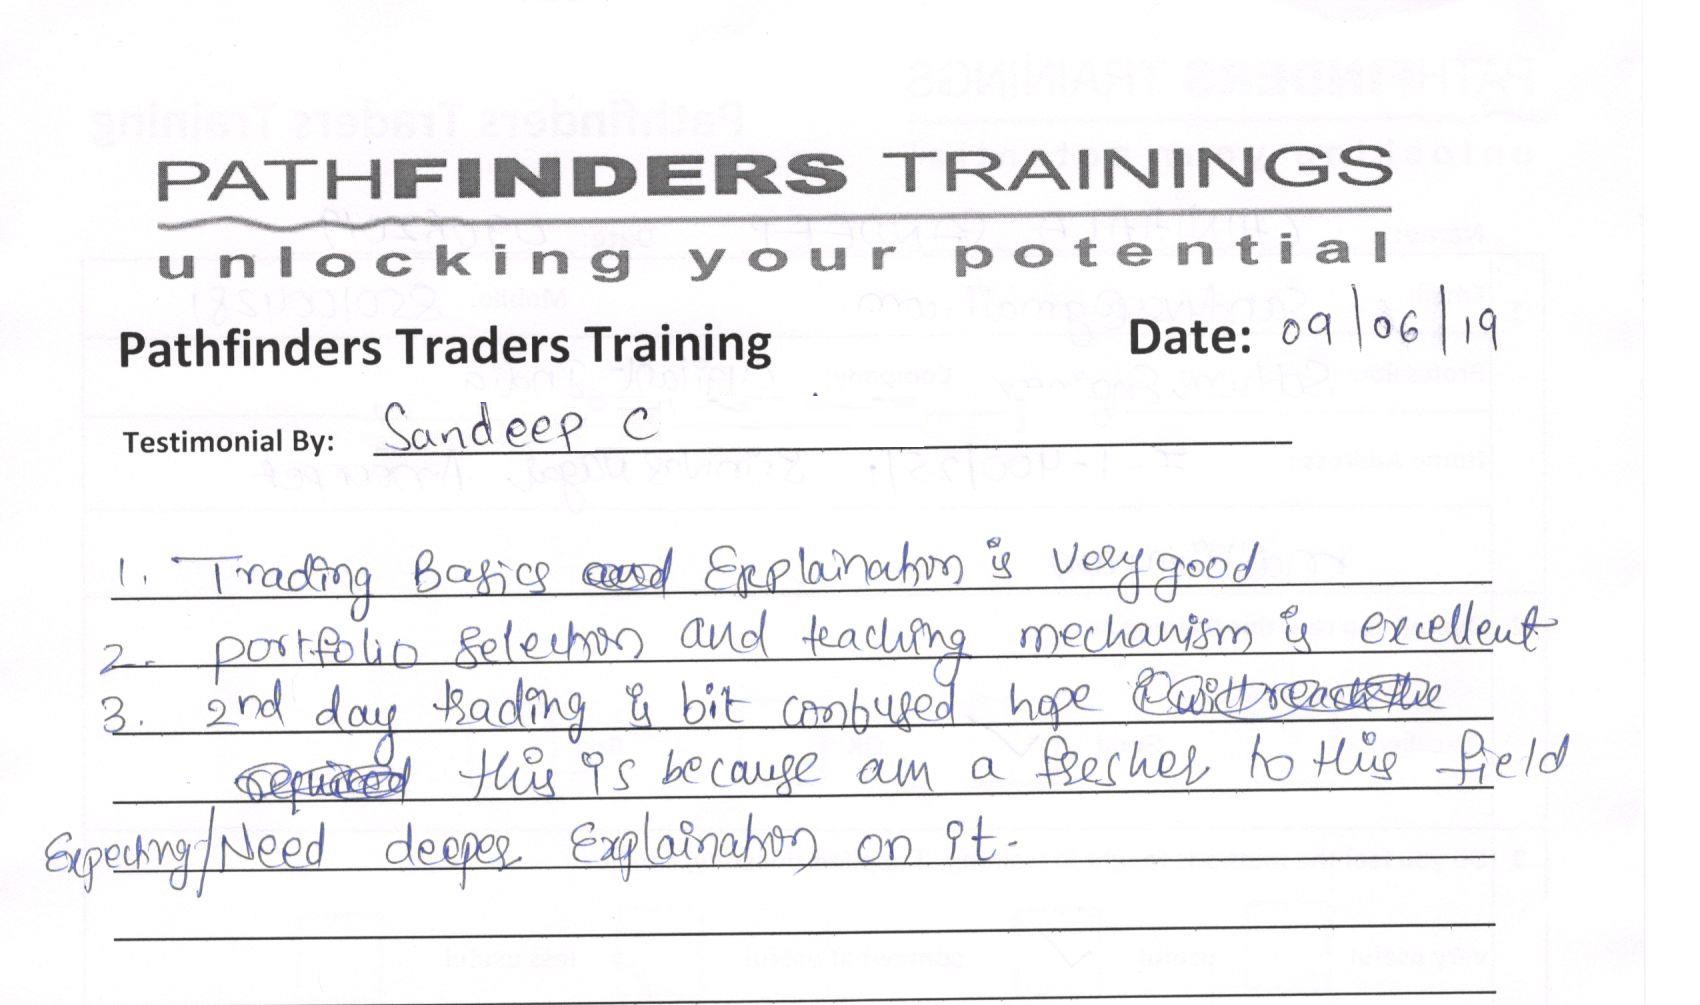 PATHFINDERS TRAININGS
unlocking your potential
Pathfinders Traders Training Date: 09/06/19
Testimonial By: Sandeep C
1. Trading Basics and Explaination is very good
2. portfolio selection and teaching mechanism is excellent
3. 2nd day trading is bit confused hope
this is because am a fresher to this field
Expecting/Need deeper Explaination on it.